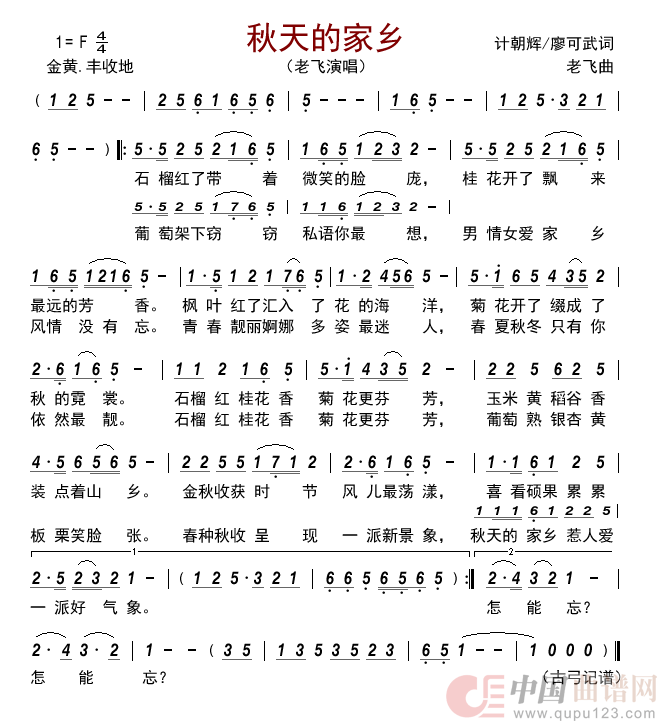 1= F 4/4
秋天的家乡
计朝辉/廖可武词
金黄.丰收地
（老飞演唱）
老飞曲
( 1 2 5 - - | 2 5 6 1 6 5 6 | 5 - - - | 1 6 5 - - | 1 2 5·3 2 1 |
6 5 - - ) ‖: 5·5 2 5 2 1 6 5 | 5·5 1 6 5 1 2 3 2 - | 5·5 2 5 2 1 6 5 |
石 榴红了带 着 微笑的脸 庞， 桂 花开了飘 来
5·5 2 5 2 1 7 6 5 | 1 1 1 6 1 2 3 2 - |
葡 萄架下窃 窃 私语你最 想， 男 情女爱 家 乡
1 6 5 1 2 1 6 5 - | 1·5 1 2 1 7 6 5 | 1·2 4 5 6 5 - | 5·1 6 5 4 3 5 2 |
最远的芳 香。 枫 叶 红了汇入 了 花 的海 洋， 菊 花开了 缀成 了
风情 没 有 忘。 青 春 靓丽婀娜 多 姿 最迷 人， 春 夏秋冬 只有 你
2·6 1 6 5 - | 1 1 2 1 6 5 | 5·1 4 3 5 2 - | 2 2 5 6 2 5 |
秋 的 霓 裳。 石榴 红 桂花 香 菊 花更芬 芳， 玉米 黄 稻谷 香
依 然 最 靓。 石榴 红 桂花 香 菊 花更芬 芳， 葡萄 熟 银杏 黄
4·5 6 5 6 5 - | 2 2 5 5 1 7 1 2 | 2·6 1 6 2 - | 1·1 6 1 2 5 |
装 点着山 乡。 金秋收获 时 节 风 儿最荡 漾， 喜 看硕果 累 累
1 1 1 6 1 2 2 5
板 栗笑脸 张。 春种秋收 呈 现 一 派新景 象， 秋天的 家乡 惹人爱
1
2
2·5 2 3 2 1 - | ( 1 2 5·3 2 1 | 6 6 5 6 5 6 5 | 5 - - - ) :‖ 2·4 3 2 1 2 |
一 派好 气 象。 怎 能 忘？
2·4 3·2 | 1 - - ( 3 5 | 1 3 5 3 5 2 3 | 6 5 1 - - | 1 0 0 0 ) ‖
怎 能 忘？
（古弓记谱）
中国曲谱网
www.qupu123.com